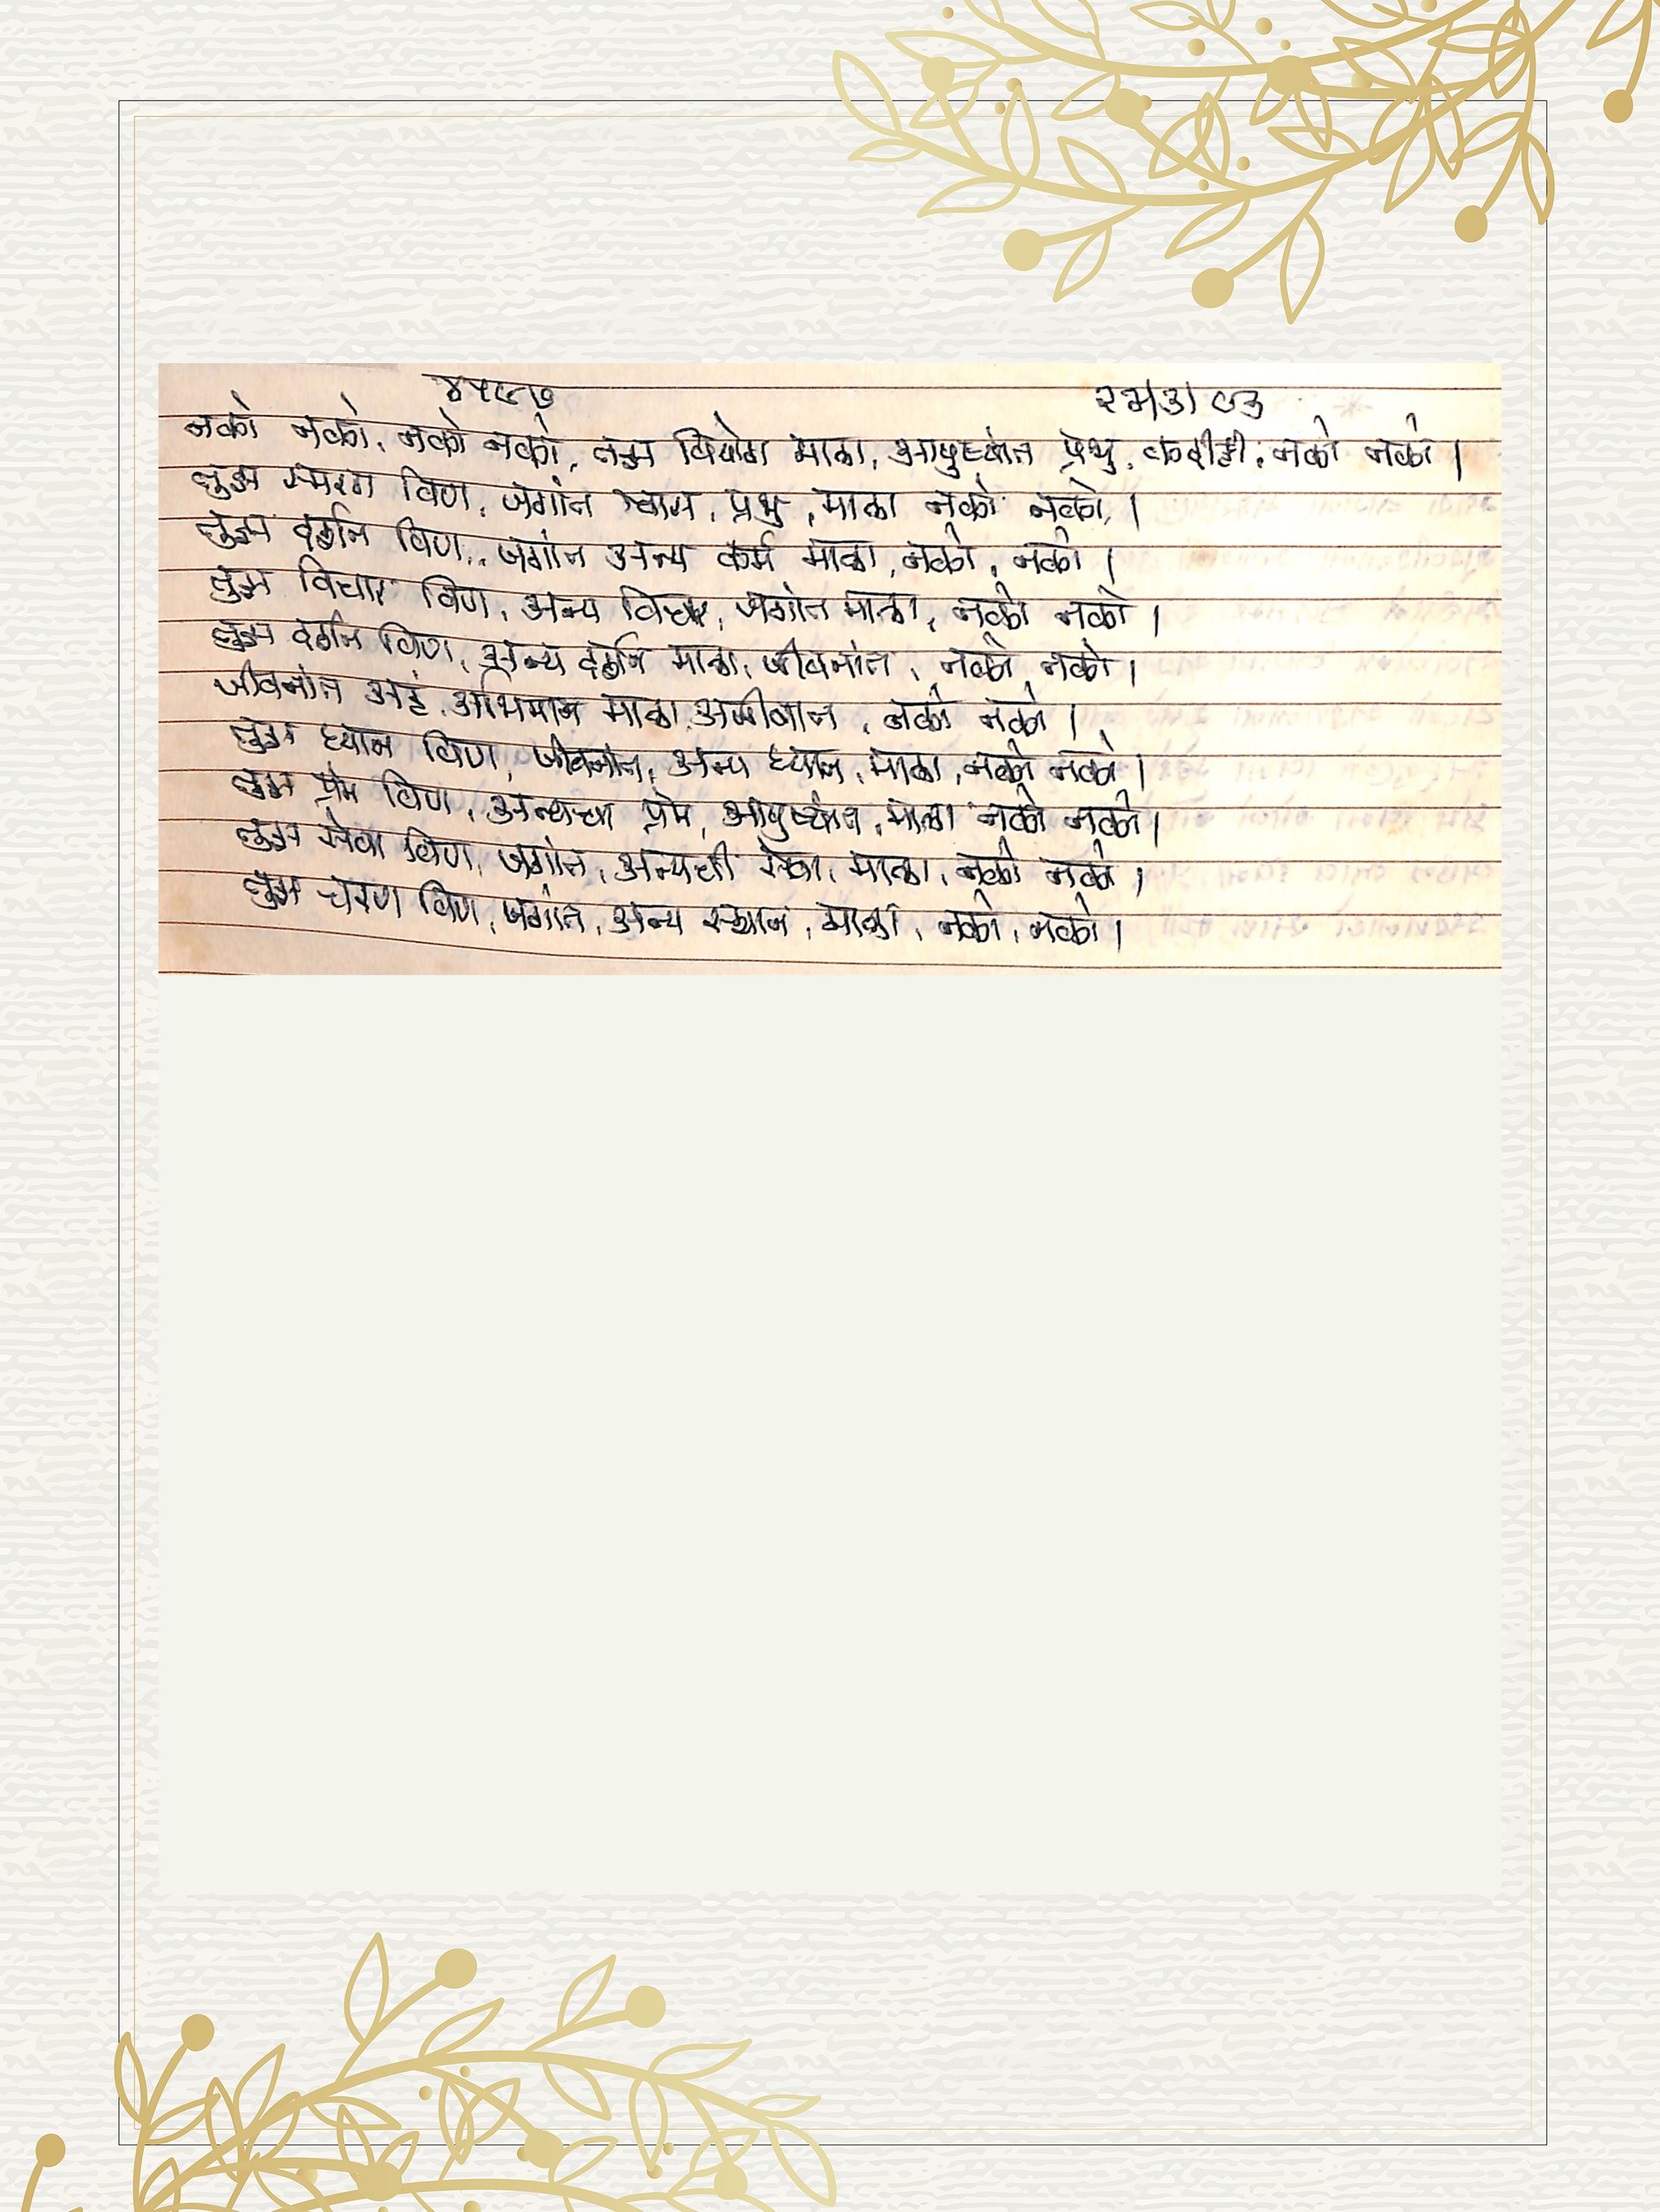 नको नको, नको नको, तुझा वियोग माळा, आयुष्यांत प्रभु, कदीही, नको नको ।
तुझ स्मरण विण, जगांत श्वास, प्रभु, माळा नको नको, ।
तुझ दर्शन विण, जगांत अन्य कर्म माळा, नको, नको ।
तुझ विचार विण, अन्य विचार, जगांत माळा, नको नको ।
तुझ दर्शन विण, अन्य दर्शन माळा, जीवनांत, नको नको ।
जीवनांत अहं, अभिमान माळा, नको नको ।
तुझ ध्यान विण, जीवनांत, अन्य ध्यान, माळा, नको नको ।
तुझ प्रेम विण, अन्यचा प्रेम, आयुष्यांत, माळा नको नको ।
तुझ सेवा विण, जगांत, अन्यची सेवा, माळा, नको नको ।
तुझ चरण विण, जगांत, अन्य स्थान, माळा, नको, नको ।